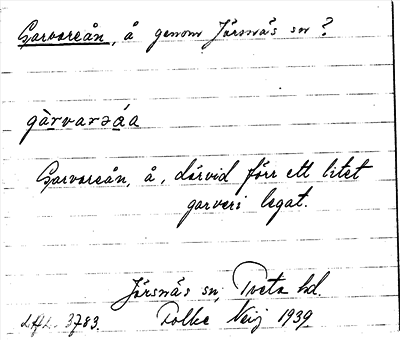 Garvareån, å genom Järsnäs sn?
gàrvarəáa
Garvareån, å, därvid förr ett litet
garveri legat.
Järsnäs sn, Tveta hd.
LfL. 3783. Folke Neij 1939